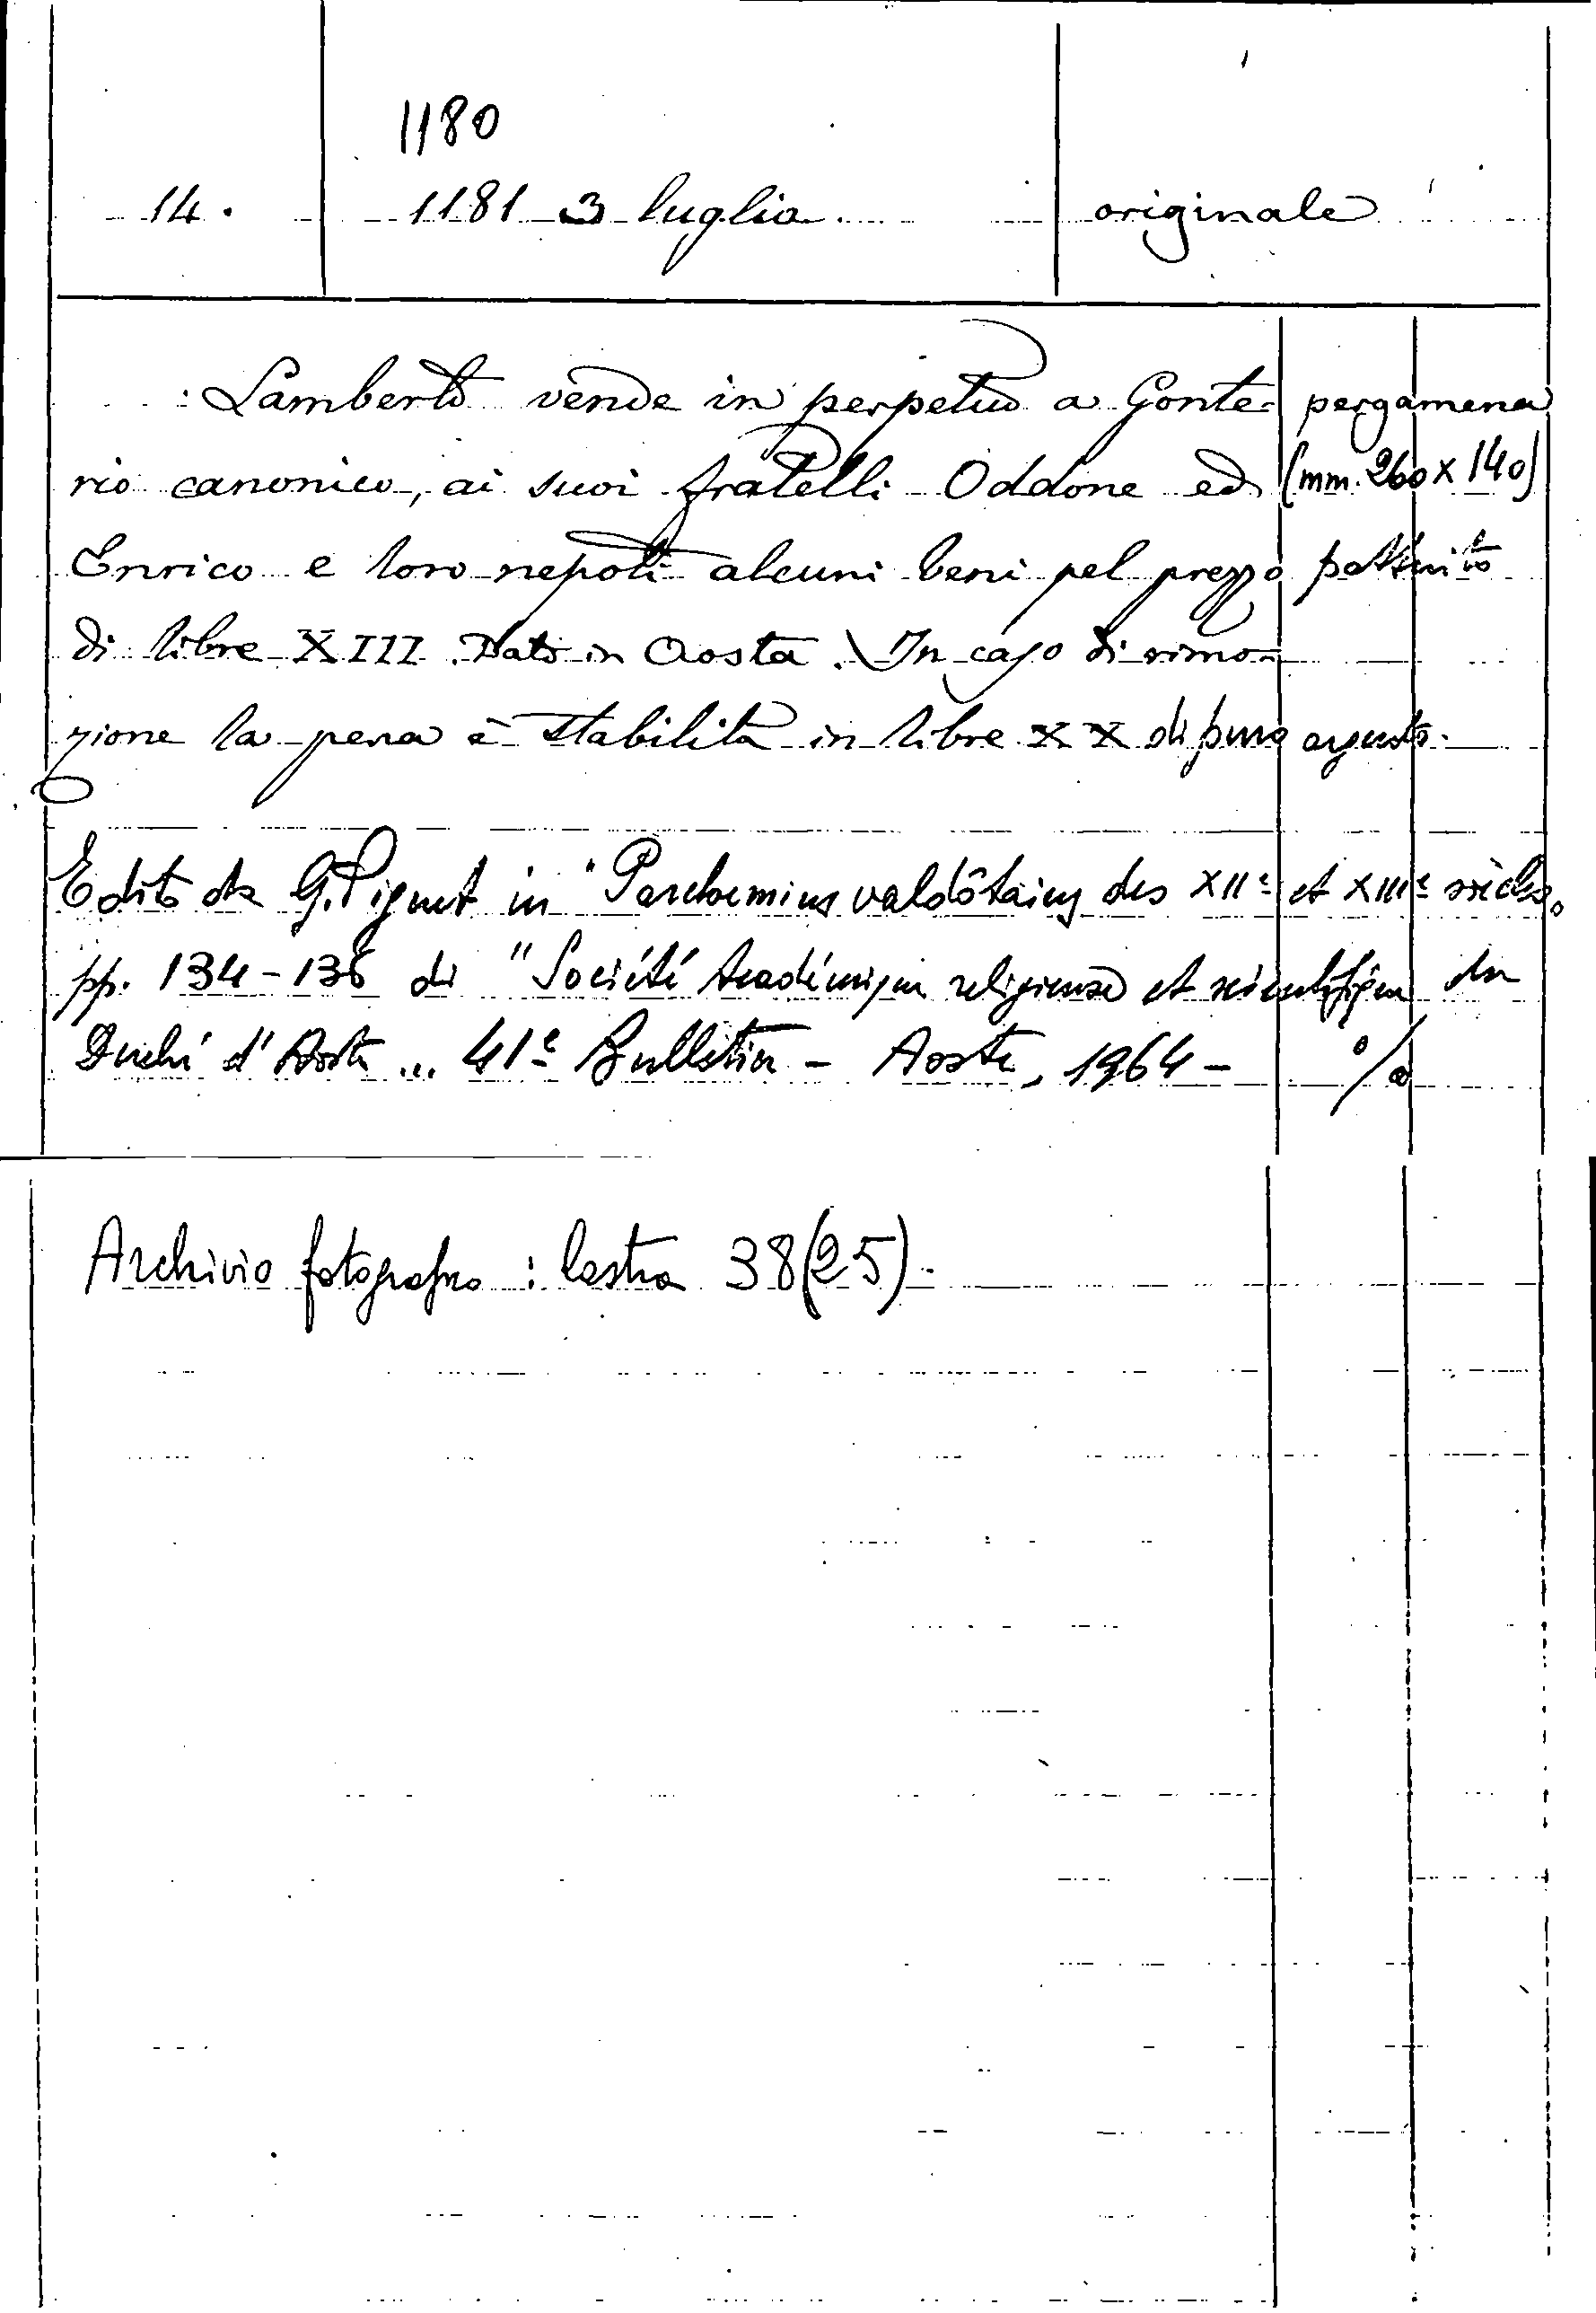 1180
14. 1181 3 luglia. originale
Lamberto vende in perpetuo a Gonte- pergamena
rio canonico, ai suoi fratelli Oddone ed (mm. 260 x 140)
Enrico e loro nepoti alcuni beni pel prezzo
di libre XIII. Dato in Aosta. In caso di rimo-
zione la pena è stabilita in libre XX di puro argento.
Edito da G. Pignet in "Parchemins valdôtains des XIIe et XIIIe siècles,
pp. 134-136 di "Société Académique religieuse et scientifique du
Duché d'Aoste ... 41e Bulletin - Aoste, 1964 - %
Archivio fotografico : lastra 38(25).